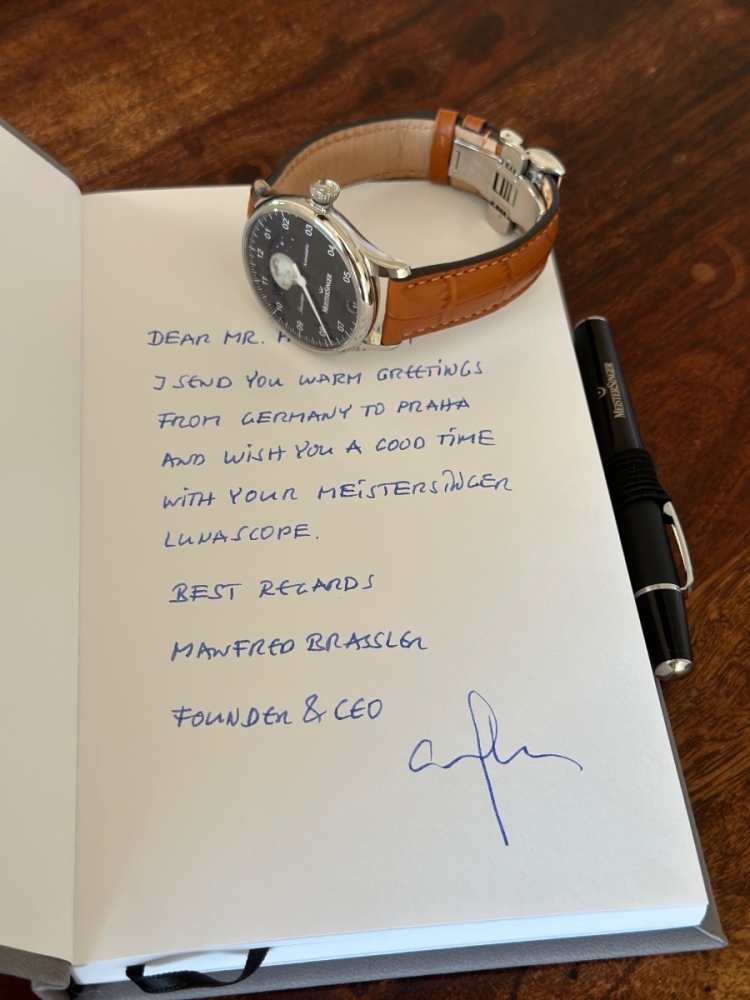 01
02
03
04
05
07
09
10
11
12
MEISTERSINGER
MEISTERSINGER
DEAR MR.
I SEND YOU WARM GREETINGS
FROM GERMANY TO PRAHA
AND WISH YOU A GOOD TIME
WITH YOUR MEISTERSINGER
LUNASCOPE.
BEST REGARDS
MANFRED BRASSLER
FOUNDER & CEO